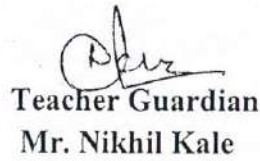 Teacher Guardian
Mr. Nikhil Kale